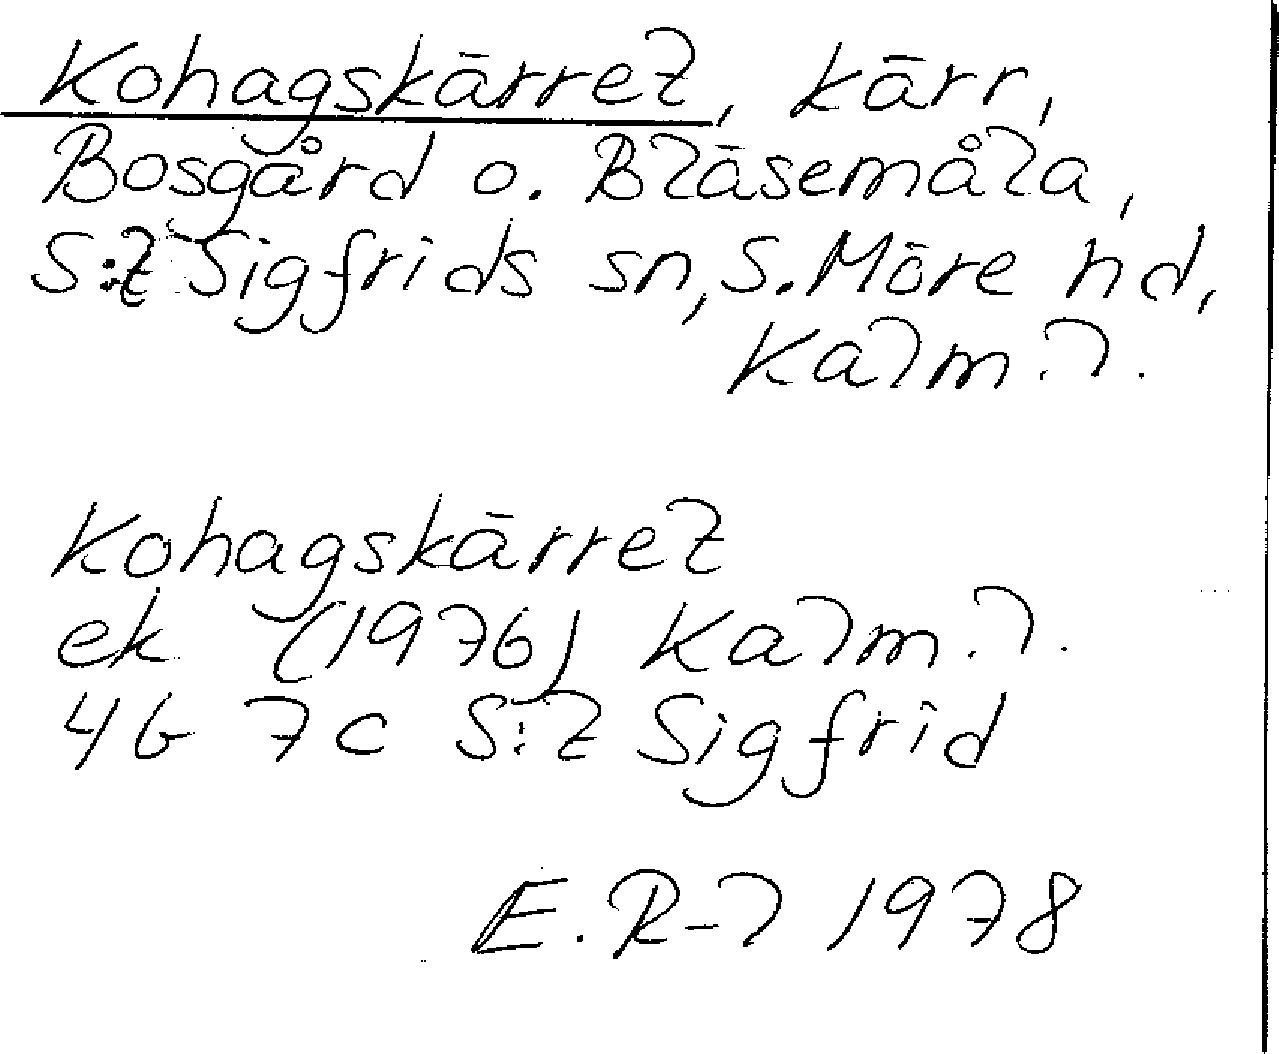 Kohagskärret, kärr,
Bosgård o. Bläsemåla,
S:t Sigfrids sn, S. Möre hd,
Kalm. l.
Kohagskärret
ek (1976) Kalm. l.
4G 7c S:t Sigfrid
E. R-l 1978